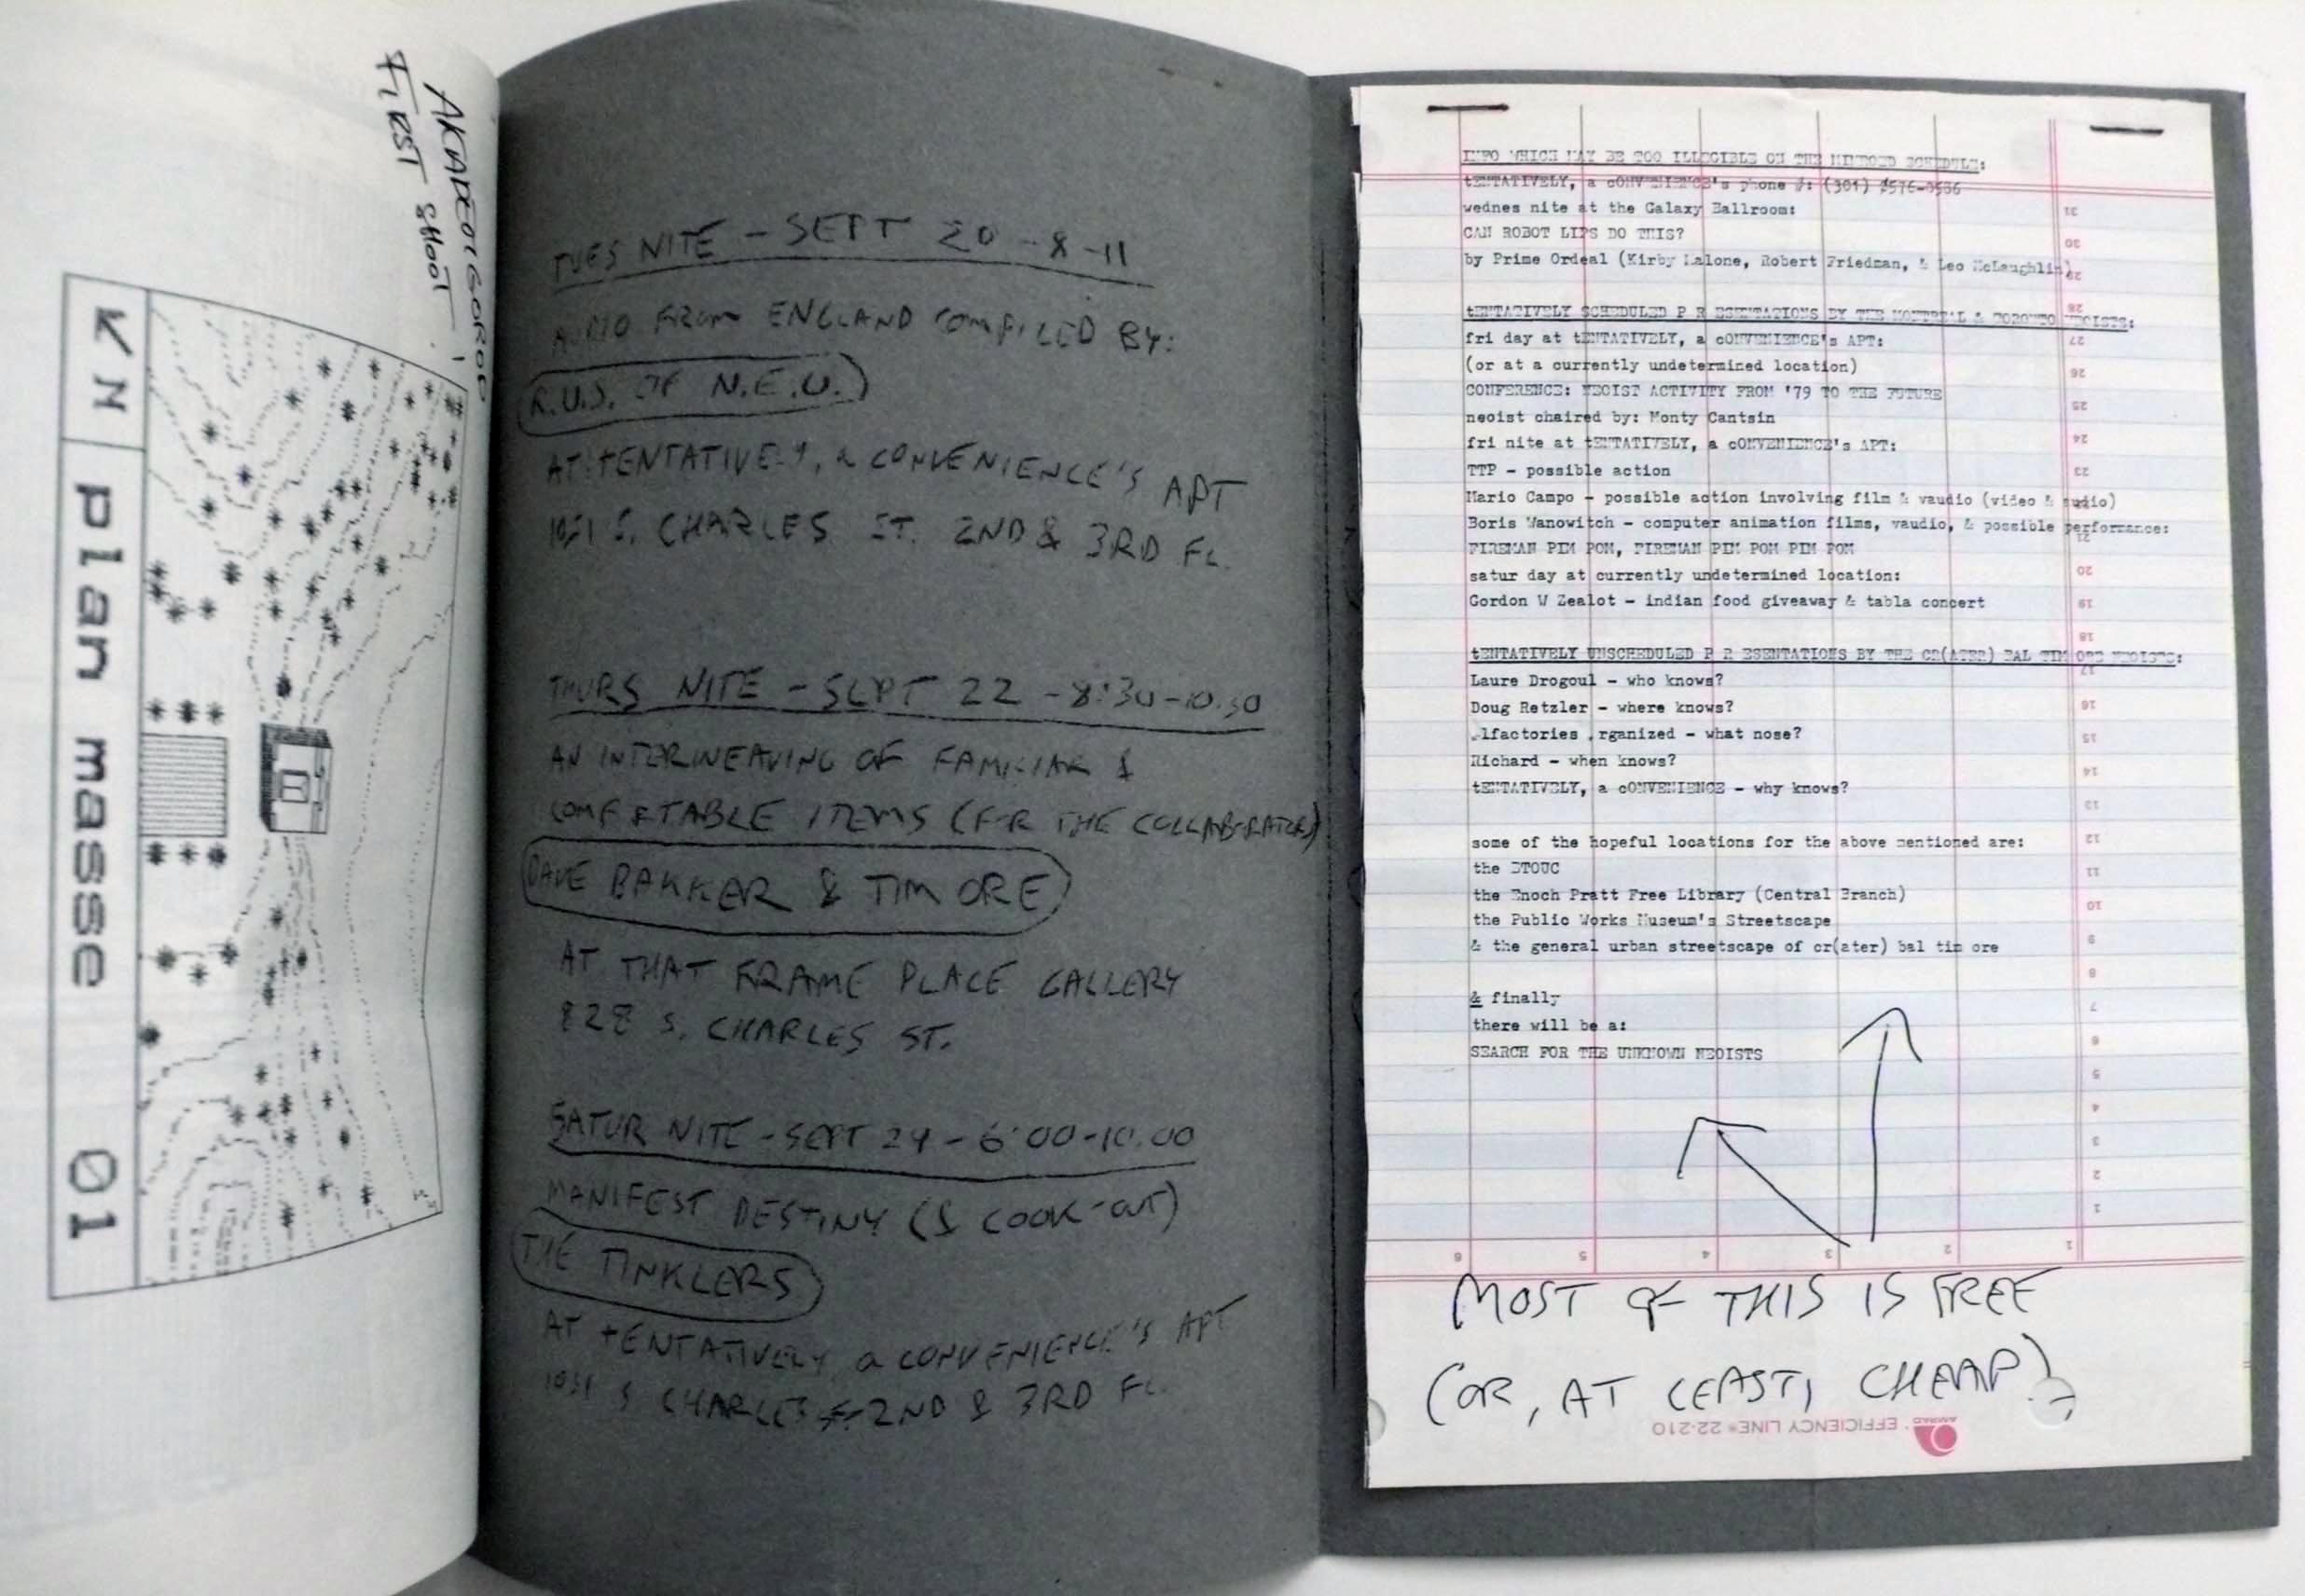 FIRST SHOOT
N
plan masse 01
TUES NITE - SEPT 20 - 8-11
AUDIO FROM ENGLAND COMPILED BY:
R.U.S. OF N.E.U.
AT tENTATIVELY, a cONVENIENCE'S APT
S. CHARLES ST. 2ND & 3RD FL.
THURS NITE - SEPT 22 - 8:30-10:30
AN INTERWEAVING OF FAMILIAR &
COMFORTABLE ITEMS (FOR THE COLLABORATORS)
DAVE BAKKER & TIM ORE
AT THAT FRAME PLACE GALLERY
828 S. CHARLES ST.
SATUR NITE - SEPT 24 - 6:00-10:00
MANIFEST DESTINY (& COOK-OUT)
THE TINKLERS
AT tENTATIVELY, a cONVENIENCE'S APT
S CHARLES 2ND & 3RD FL.
INFO WHICH MAY BE TOO ILLEGIBLE ON THE MIMEOED SCHEDULE:
tENTATIVELY, a cONVENIENCE's phone #: (301)
wednes nite at the Galaxy Ballroom:
CAN ROBOT LIPS DO THIS?
by Prime Ordeal (Kirby Lalone, Robert Friedman, & Leo McLaughlin)
tENTATIVELY SCHEDULED P R ESENTATIONS BY THE MONTREAL & TORONTO NEOISTS:
fri day at tENTATIVELY, a cONVENIENCE's APT:
(or at a currently undetermined location)
CONFERENCE: NEOIST ACTIVITY FROM '79 TO THE FUTURE
neoist chaired by: Monty Cantsin
fri nite at tENTATIVELY, a cONVENIENCE's APT:
TTP - possible action
Mario Campo - possible action involving film & vaudio (video & audio)
Boris Wanowitch - computer animation films, vaudio, & possible performance:
FIREMAN PIM POM, FIREMAN PIM POM PIM POM
satur day at currently undetermined location:
Gordon W Zealot - indian food giveaway & tabla concert
tENTATIVELY UNSCHEDULED P R ESENTATIONS BY THE CR(ATER) BAL TIM ORE NEOISTS:
Laure Drogoul - who knows?
Doug Retzler - where knows?
lfactories rganized - what nose?
Richard - when knows?
tENTATIVELY, a cONVENIENCE - why knows?
some of the hopeful locations for the above mentioned are:
the DTOUC
the Enoch Pratt Free Library (Central Branch)
the Public Works Museum's Streetscape
& the general urban streetscape of cr(ater) bal tim ore
& finally
there will be a:
SEARCH FOR THE UNKNOWN NEOISTS
31
30
29
28
27
26
25
24
23
22
21
20
19
18
17
16
15
14
13
12
11
10
9
8
7
6
5
4
3
2
1
6 5 4 3 2 1
MOST OF THIS IS FREE
(OR, AT LEAST, CHEAP)
AMPAD EFFICIENCY LINE® 22-210